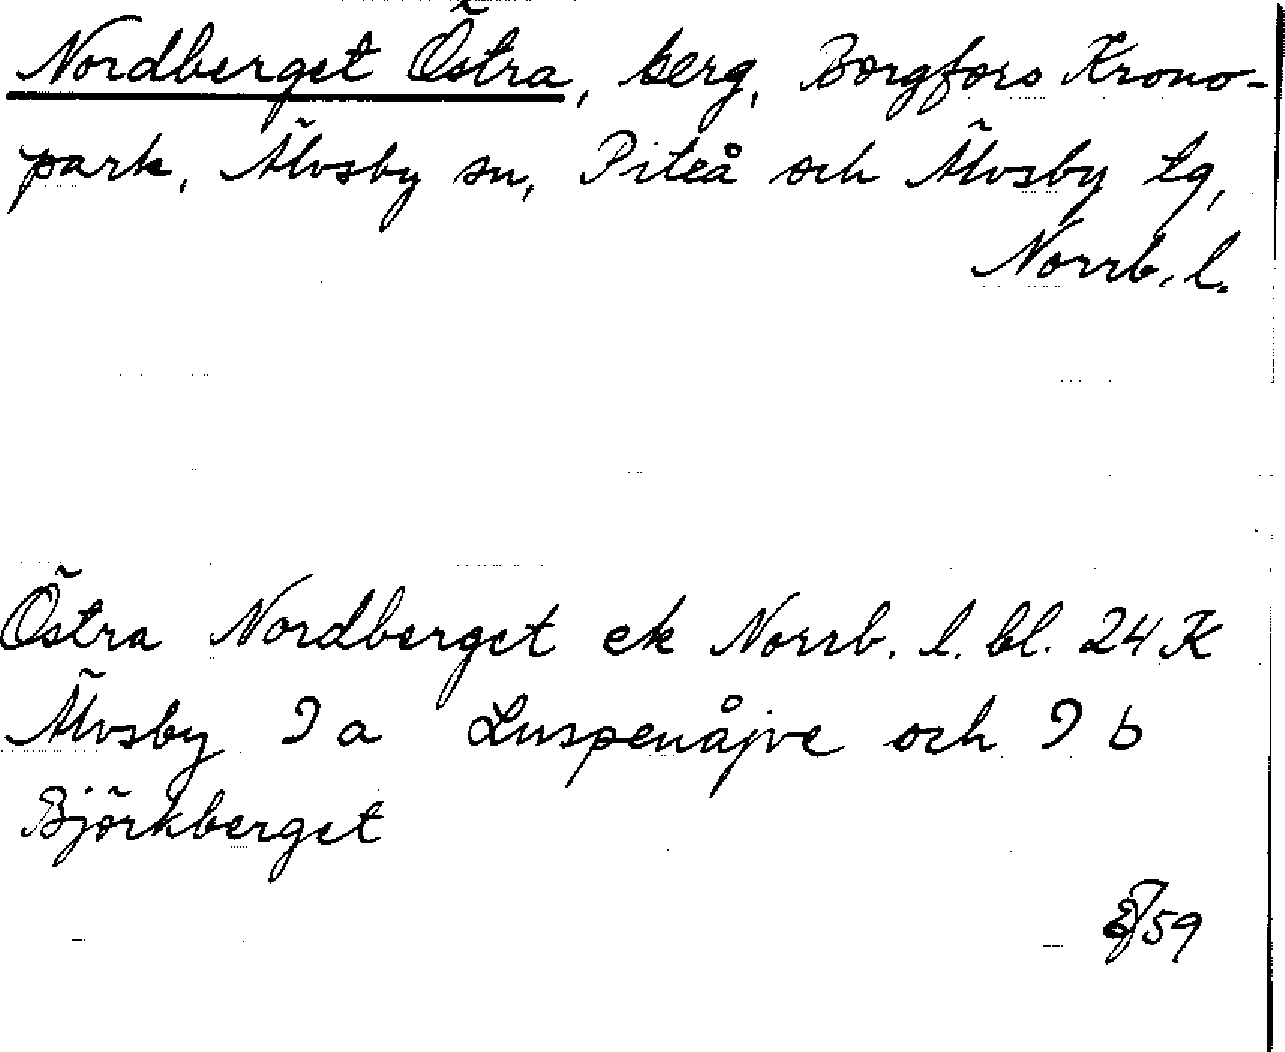 Nordberget Östra, berg, Borgfors Krono-
park, Älvsby sn, Piteå och Älvsby tg,
Norrb. l.
Östra Nordberget ek Norrb. l. bl. 24 K
Älvsby 9 a Luspenåjve och 9 b
Björkberget
59